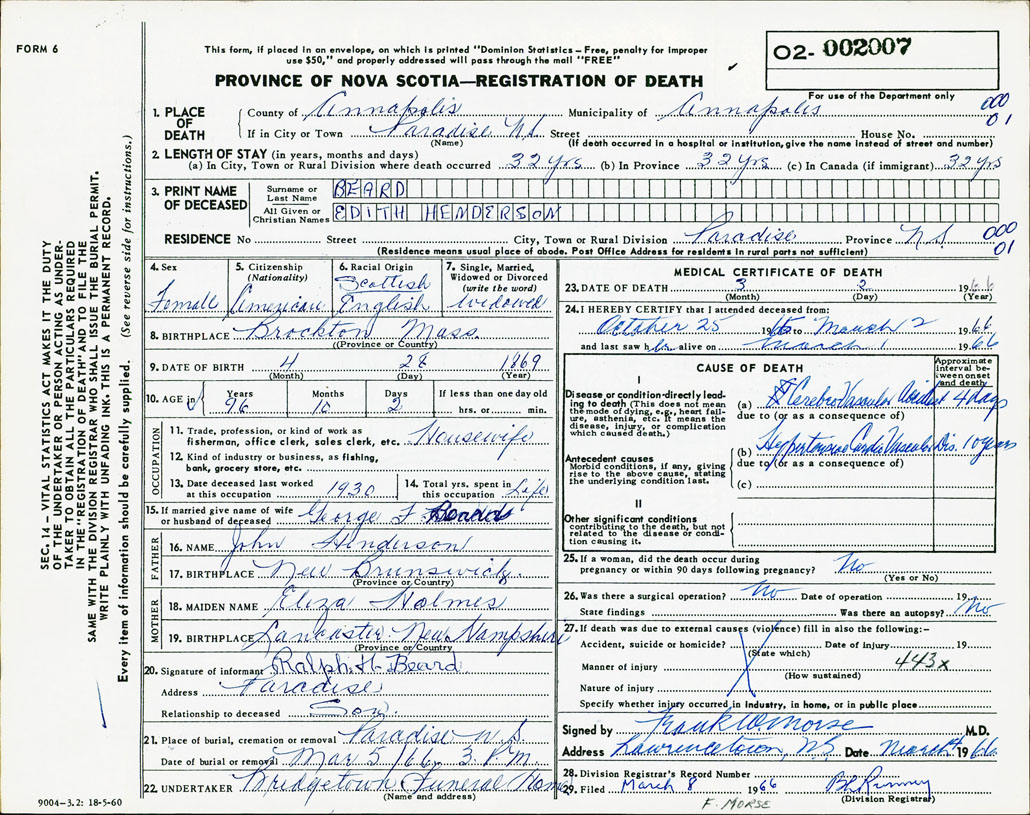 FORM 6
This form, if placed in an envelope, on which is printed "Dominion Statistics – Free, penalty for improper
use $50," and properly addressed will pass through the mail "FREE"
02- 002007
For use of the Department only
PROVINCE OF NOVA SCOTIA—REGISTRATION OF DEATH
000
01
1. PLACE OF DEATH
County of Annapolis Municipality of Annapolis
If in City or Town Paradise N.S. Street House No.
(Name) (If death occurred in a hospital or institution, give the name instead of street and number)
2. LENGTH OF STAY (in years, months and days)
(a) In City, Town or Rural Division where death occurred 32 yrs (b) In Province 32 yrs (c) In Canada (if immigrant) 32 yrs
3. PRINT NAME OF DECEASED
Surname or Last Name BEARD
All Given or Christian Names EDITH HENDERSON
RESIDENCE No Street City, Town or Rural Division Paradise Province N.S.
000
01
(Residence means usual place of abode. Post Office Address for residents in rural parts not sufficient)
4. Sex Female
5. Citizenship (Nationality) American
6. Racial Origin Scottish English
7. Single, Married, Widowed or Divorced (write the word) Widowed
8. BIRTHPLACE Brockton Mass.
(Province or Country)
9. DATE OF BIRTH 4 28 1869
(Month) (Day) (Year)
10. AGE in Years Months Days If less than one day old
96 10 2 hrs. or min.
OCCUPATION
11. Trade, profession, or kind of work as
fisherman, office clerk, sales clerk, etc. Housewife
12. Kind of industry or business, as fishing,
bank, grocery store, etc.
13. Date deceased last worked
at this occupation 1930
14. Total yrs. spent in
this occupation Life
15. If married give name of wife
or husband of deceased George F Beard
FATHER
16. NAME John Henderson
17. BIRTHPLACE New Brunswick
(Province or Country)
MOTHER
18. MAIDEN NAME Eliza Holmes
19. BIRTHPLACE Lancaster New Hampshire
(Province or Country)
20. Signature of informant Ralph H. Beard
Address Paradise
Relationship to deceased Son.
21. Place of burial, cremation or removal Paradise N.S.
Date of burial or removal Mar 5/66 3 P.M.
22. UNDERTAKER Bridgetown Funeral Home
(Name and address)
9004—3.2: 18-5-60
MEDICAL CERTIFICATE OF DEATH
23. DATE OF DEATH 3 2 1966
(Month) (Day) (Year)
24. I HEREBY CERTIFY that I attended deceased from:
October 25 1965 to March 2 1966
and last saw her alive on March 1 1966
CAUSE OF DEATH
Approximate interval between onset and death
I
Disease or condition directly leading to death (This does not mean the mode of dying, e.g., heart failure, asthenia, etc. It means the disease, injury, or complication which caused death.)
(a) Cerebro Vascular Accident 4 days
due to (or as a consequence of)
(b) Hypertensive Cardio Vascular Dis. 10 years
due to (or as a consequence of)
(c)
Antecedent causes
Morbid conditions, if any, giving rise to the above cause, stating the underlying condition last.
II
Other significant conditions
contributing to the death, but not related to the disease or condition causing it.
25. If a woman, did the death occur during
pregnancy or within 90 days following pregnancy? No
(Yes or No)
26. Was there a surgical operation? No Date of operation 19
State findings Was there an autopsy? No
27. If death was due to external causes (violence) fill in also the following:–
Accident, suicide or homicide? Date of injury 19
(State which)
443x
Manner of injury
(How sustained)
Nature of injury
Specify whether injury occurred in industry, in home, or in public place
Signed by Frank W Morse M.D.
Address Lawrencetown, N.S. Date March 1966
28. Division Registrar's Record Number
29. Filed March 8 1966
(Division Registrar)
F. MORSE
SEC. 14 – VITAL STATISTICS ACT MAKES IT THE DUTY
OF THE UNDERTAKER OR PERSON ACTING AS UNDER-
TAKER TO OBTAIN ALL THE PARTICULARS REQUIRED
IN THE "REGISTRATION OF DEATH" AND TO FILE THE
SAME WITH THE DIVISION REGISTRAR WHO SHALL ISSUE THE BURIAL PERMIT.
WRITE PLAINLY WITH UNFADING INK. THIS IS A PERMANENT RECORD.
Every item of information should be carefully supplied. (See reverse side for instructions.)